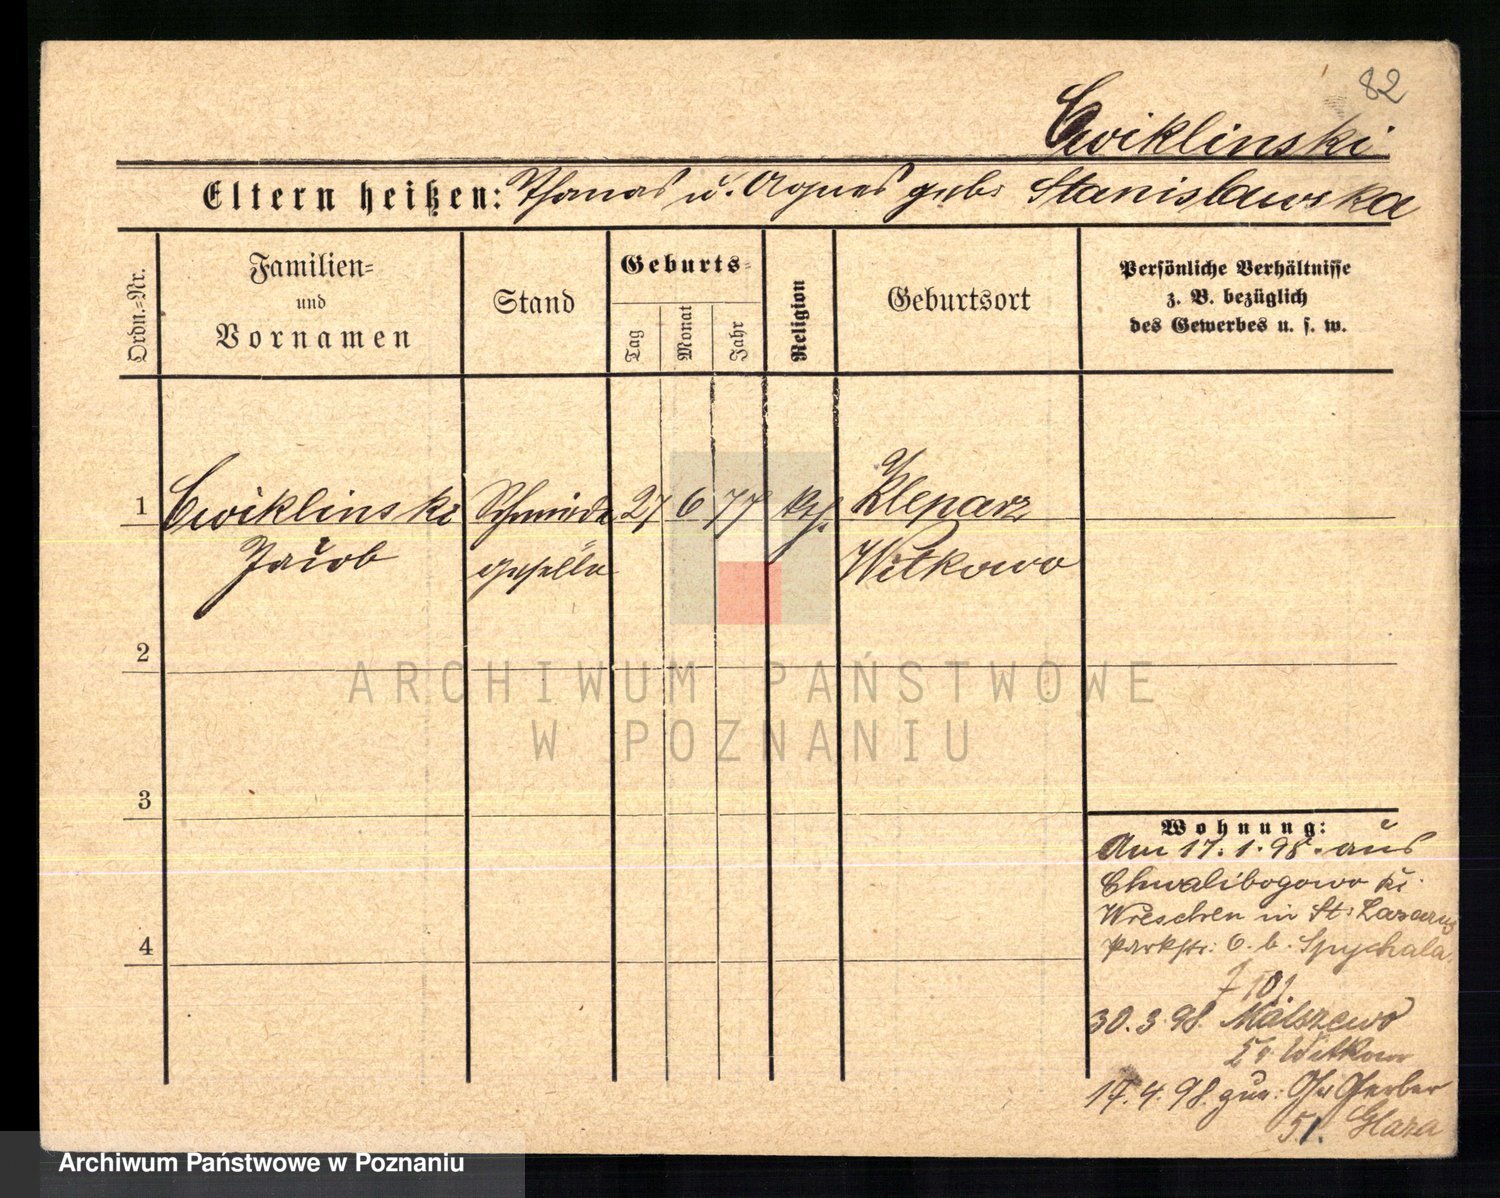 82
Cwiklinski
Eltern heißen: Thomas u. Agnes geb. Stanislawska
Ordn.=Nr.
Familien=
und
Vornamen
Stand
Geburts=
Tag
Monat
Jahr
Religion
Geburtsort
Persönliche Verhältnisse
z. B. bezüglich
des Gewerbes u. s. w.
1 Cwiklinski Schmiede 27 6 77 kth. Kleparz
Jacob geselle Witkowo
2
3
4
Wohnung:
Am 17.1.98. aus
Chwalibogowo Kr.
Wreschen in St. Lazarus
Parkstr: 6. b. Spychala.
30.3.98. Malszewo
Kr Witkowo
17.4.98. zur: Gr. Gerber
51. Glaza
ARCHIWUM PAŃSTWOWE
W POZNANIU
Archiwum Państwowe w Poznaniu